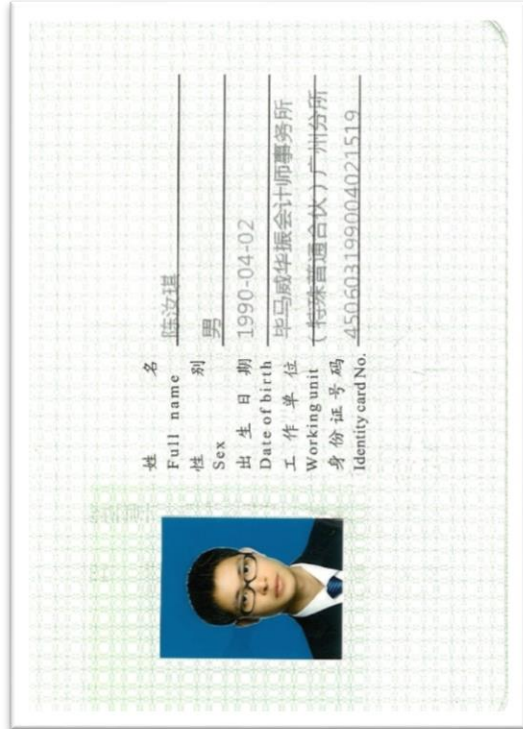 姓名 陈汝琪
Full name
性别 男
Sex
出生日期 1990-04-02
Date of birth
工作单位 毕马威华振会计师事务所
Working unit (特殊普通合伙)广州分所
身份证号码 450603199004021519
Identity card No.